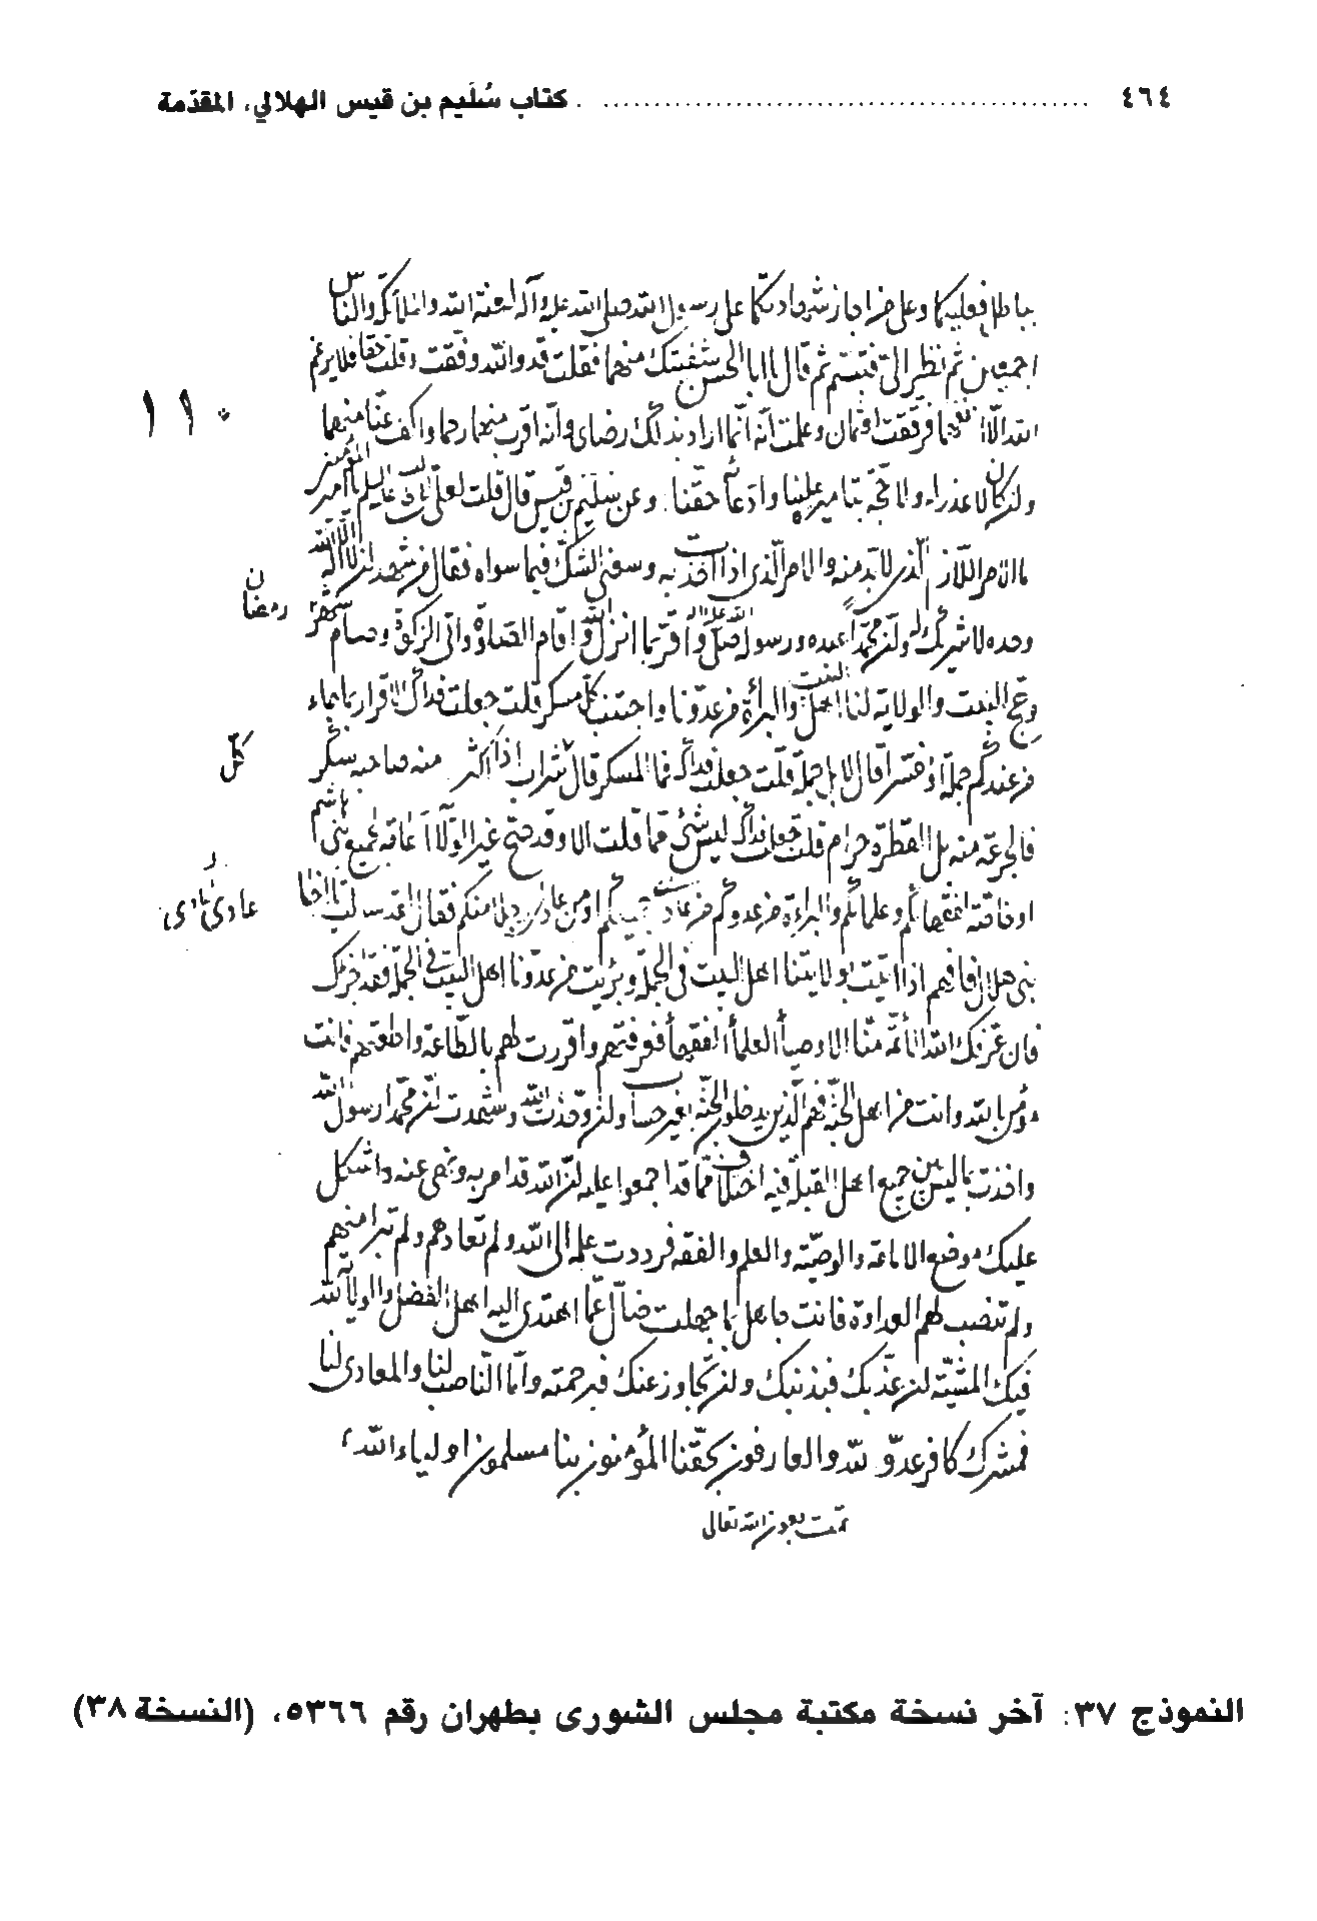 ٤٦٤ ........................................ كتاب سُلَيم بن قيس الهلالي، المقدّمة
اجمعين ثم نظر الىّ فتبسم ثم قال يا ابا الحسن شفيتك منهما فقلت قد والله وفّقت وقلت حقا فلا يرغم
١١٠
الله الّا انفهما فرققت لعثمان وعلمت أنه انّما اراد بذلك رضاى وانّه اقرب منهما رحما واكفّ عنّا منهما
وان كان لا عذر له ولا حجّة بتاميره علينا وادعائه حقّنا. وعن سليم بن قيس قال قلت لعلى بن ابى طالب عليه السلم يا امير المؤمنين
ما الامر اللازم الّذى لا بدّ منه والامر الّذى اذا اخذت به وسعنى الشكّ فيما سواه فقال من شهد ان لا اله الّا الله
رمضان
وحده لا شريك له وان محمّدا عبده ورسوله صلى الله عليه واله واقرّ بما انزل الله واقام الصلوة واتى الزكوة وصام شهر
وحج البيت والولاية لنا اهل البيت والبرأة من عدوّنا واجتنب كلّ مسكر قلت جعلت فداك الاقرار بما جاء
كلّ
من عندكم جملة او مفسرا قال لا بل جملة قلت جعلت فداك فما المسكر قال شراب اذا اكثر منه صاحبه سكر
فالجرعة منه بل القطرة حرام قلت جعلت فداك ليس شئ مما قلت الا وقد صح غير الولاء اعامة لجميع بنى هاشم
او خاصّة لفقهائكم وعلمائكم والبراءة من عدوكم من عاد جميعكم او من عادى رجلا منكم فقال لقد سالت يا اخا
بنى هلال فافهم اذا اتيت بولايتنا اهل البيت فى الجملة وبرئت من عدوّنا اهل البيت فى الجملة فقد اجزك
فان عرّفك الله الائمّة منّا الاوصيأ العلمأ الفقهأ فعرفتهم واقررت لهم بالطّاعة واطعتهم فانت
مؤمن بالله وانت من اهل الجنّة فهم الّذين يدخلون الجنّة بغير حساب وان وحّدت الله وشهدت انّ محمّدا رسول الله
واخذت بما ليس بين جميع اهل القبلة فيه اختلاف ممّا قد اجمعوا عليه انّ الله قد امر به ونهى عنه واشكل
عليك موضع الامامة والوصيّة والعلم والفقه فرددت علمه الى الله ولم تعادهم ولم تبرا منهم
ولم تنصب لهم العداوة فانت جاهل بما جهلت ضالّ عمّا اهتدى اليه اهل الفضل والولاية لله
فيك المشيّة ان عذّبك فبذنبك وان تجاوز عنك فبرحمته وامّا النّاصب لنا والمعادى لنا
فمشرك كافر عدوّ لله والعارفون بحقّنا المؤمنون بنا مسلمون اولياء الله
تمت بعون الله تعالى
النموذج ٣٧: آخر نسخة مكتبة مجلس الشورى بطهران رقم ٥٣٦٦، (النسخة ٣٨)